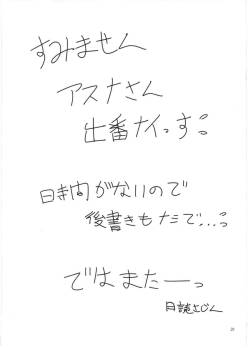 すみません
アスナさん
出番ナイっす
時間がないので
後書きもナシで…
ではまたーっ